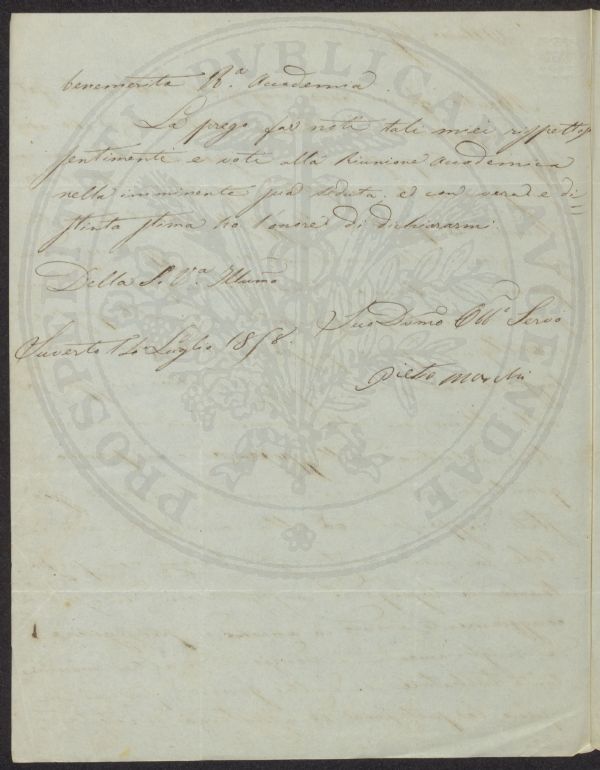 benemerita R.ª Accademia
La prego far noti tali miei rispettosi
sentimenti e voti alla Riunione Accademica
nella imminente sua seduta; ed con vera e di=
stinta stima ho l'onore di dichiararmi
Della S. V.ª Illuma
Suo Dvmo Obb.º Servo
Suvereto Luglio 1858.
Pietro
PROSPERITATI PVBLICAE AVGENDAE